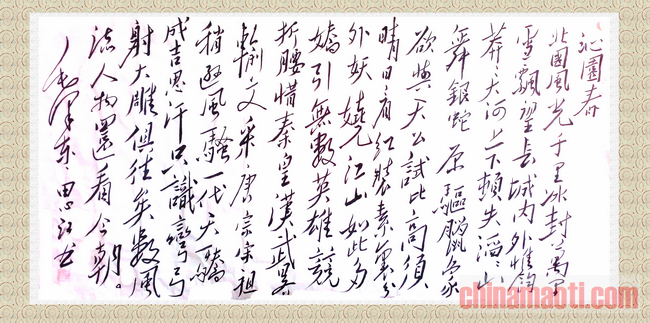 沁園春
北國風光千里冰封萬里
雪飄望長城內外惟餘
莽々大河上下頓失滔々山
舞銀蛇原驅臘象
欲與天公試比高須
晴日看紅裝素裹分
外妖嬈江山如此多
嬌引無數英雄競
折腰惜秦皇漢武畧
輸文采唐宗宋祖
稍遜風騷一代天驕
成吉思汗只識彎弓
射大雕俱往矣數風
流人物還看今朝。
毛澤東 思江書
chinamaoti.com